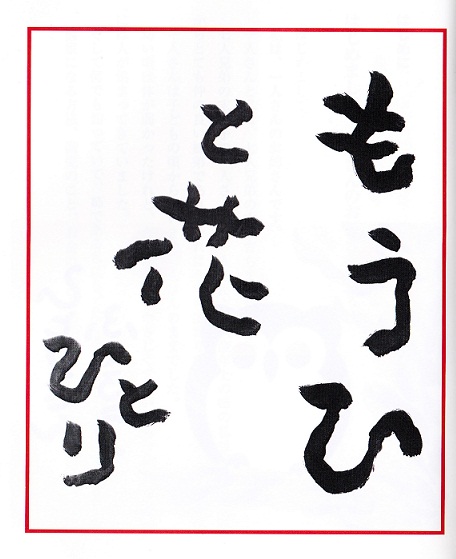 もうひ
と花
ひとり